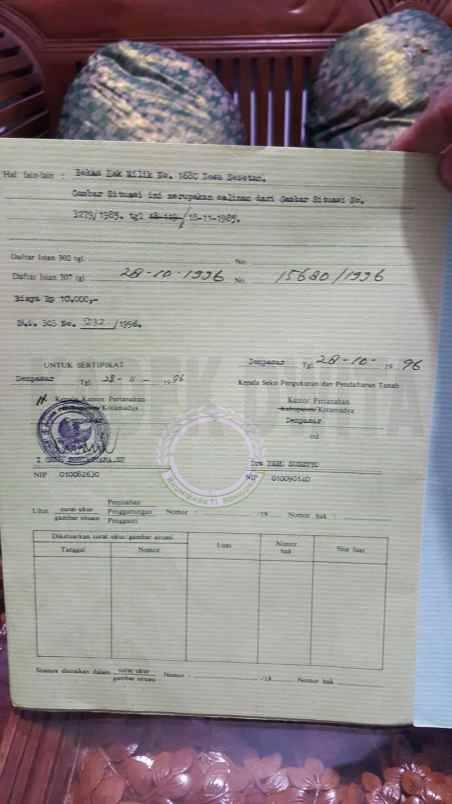 Hal lain-lain : Bekas Hak Milik No. 1680 Desa Sesetan.
Gambar Situasi ini merupakan salinan dari Gambar Situasi No.
3279/1985. tgl 18-11-1985.
Daftar Isian 302 tgl No.
Daftar Isian 307 tgl 28-10-1996 No. 15680/1996
Biaya Rp 10.000,-
D.I. 303 No. /1996.
UNTUK SERTIPIKAT
Denpasar Tgl. 28-10-1996
Denpasar Tgl. 28-11-1996
Kepala Seksi Pengukuran dan Pendaftaran Tanah
Kepala Kantor Pertanahan
Kantor Pertanahan
Kabupaten/Kotamadya
Kabupaten/Kotamadya
Denpasar
ttd
NIP 010062630
NIP 010090140
Lihat surat ukur / gambar situasi
Pemisahan
Penggabungan
Pengganti
Nomor : /19 Nomor hak :
Dikeluarkan surat ukur/gambar situasi
Tanggal Nomor Luas Nomor hak Sisa luas
Nomor : /19 Nomor hak